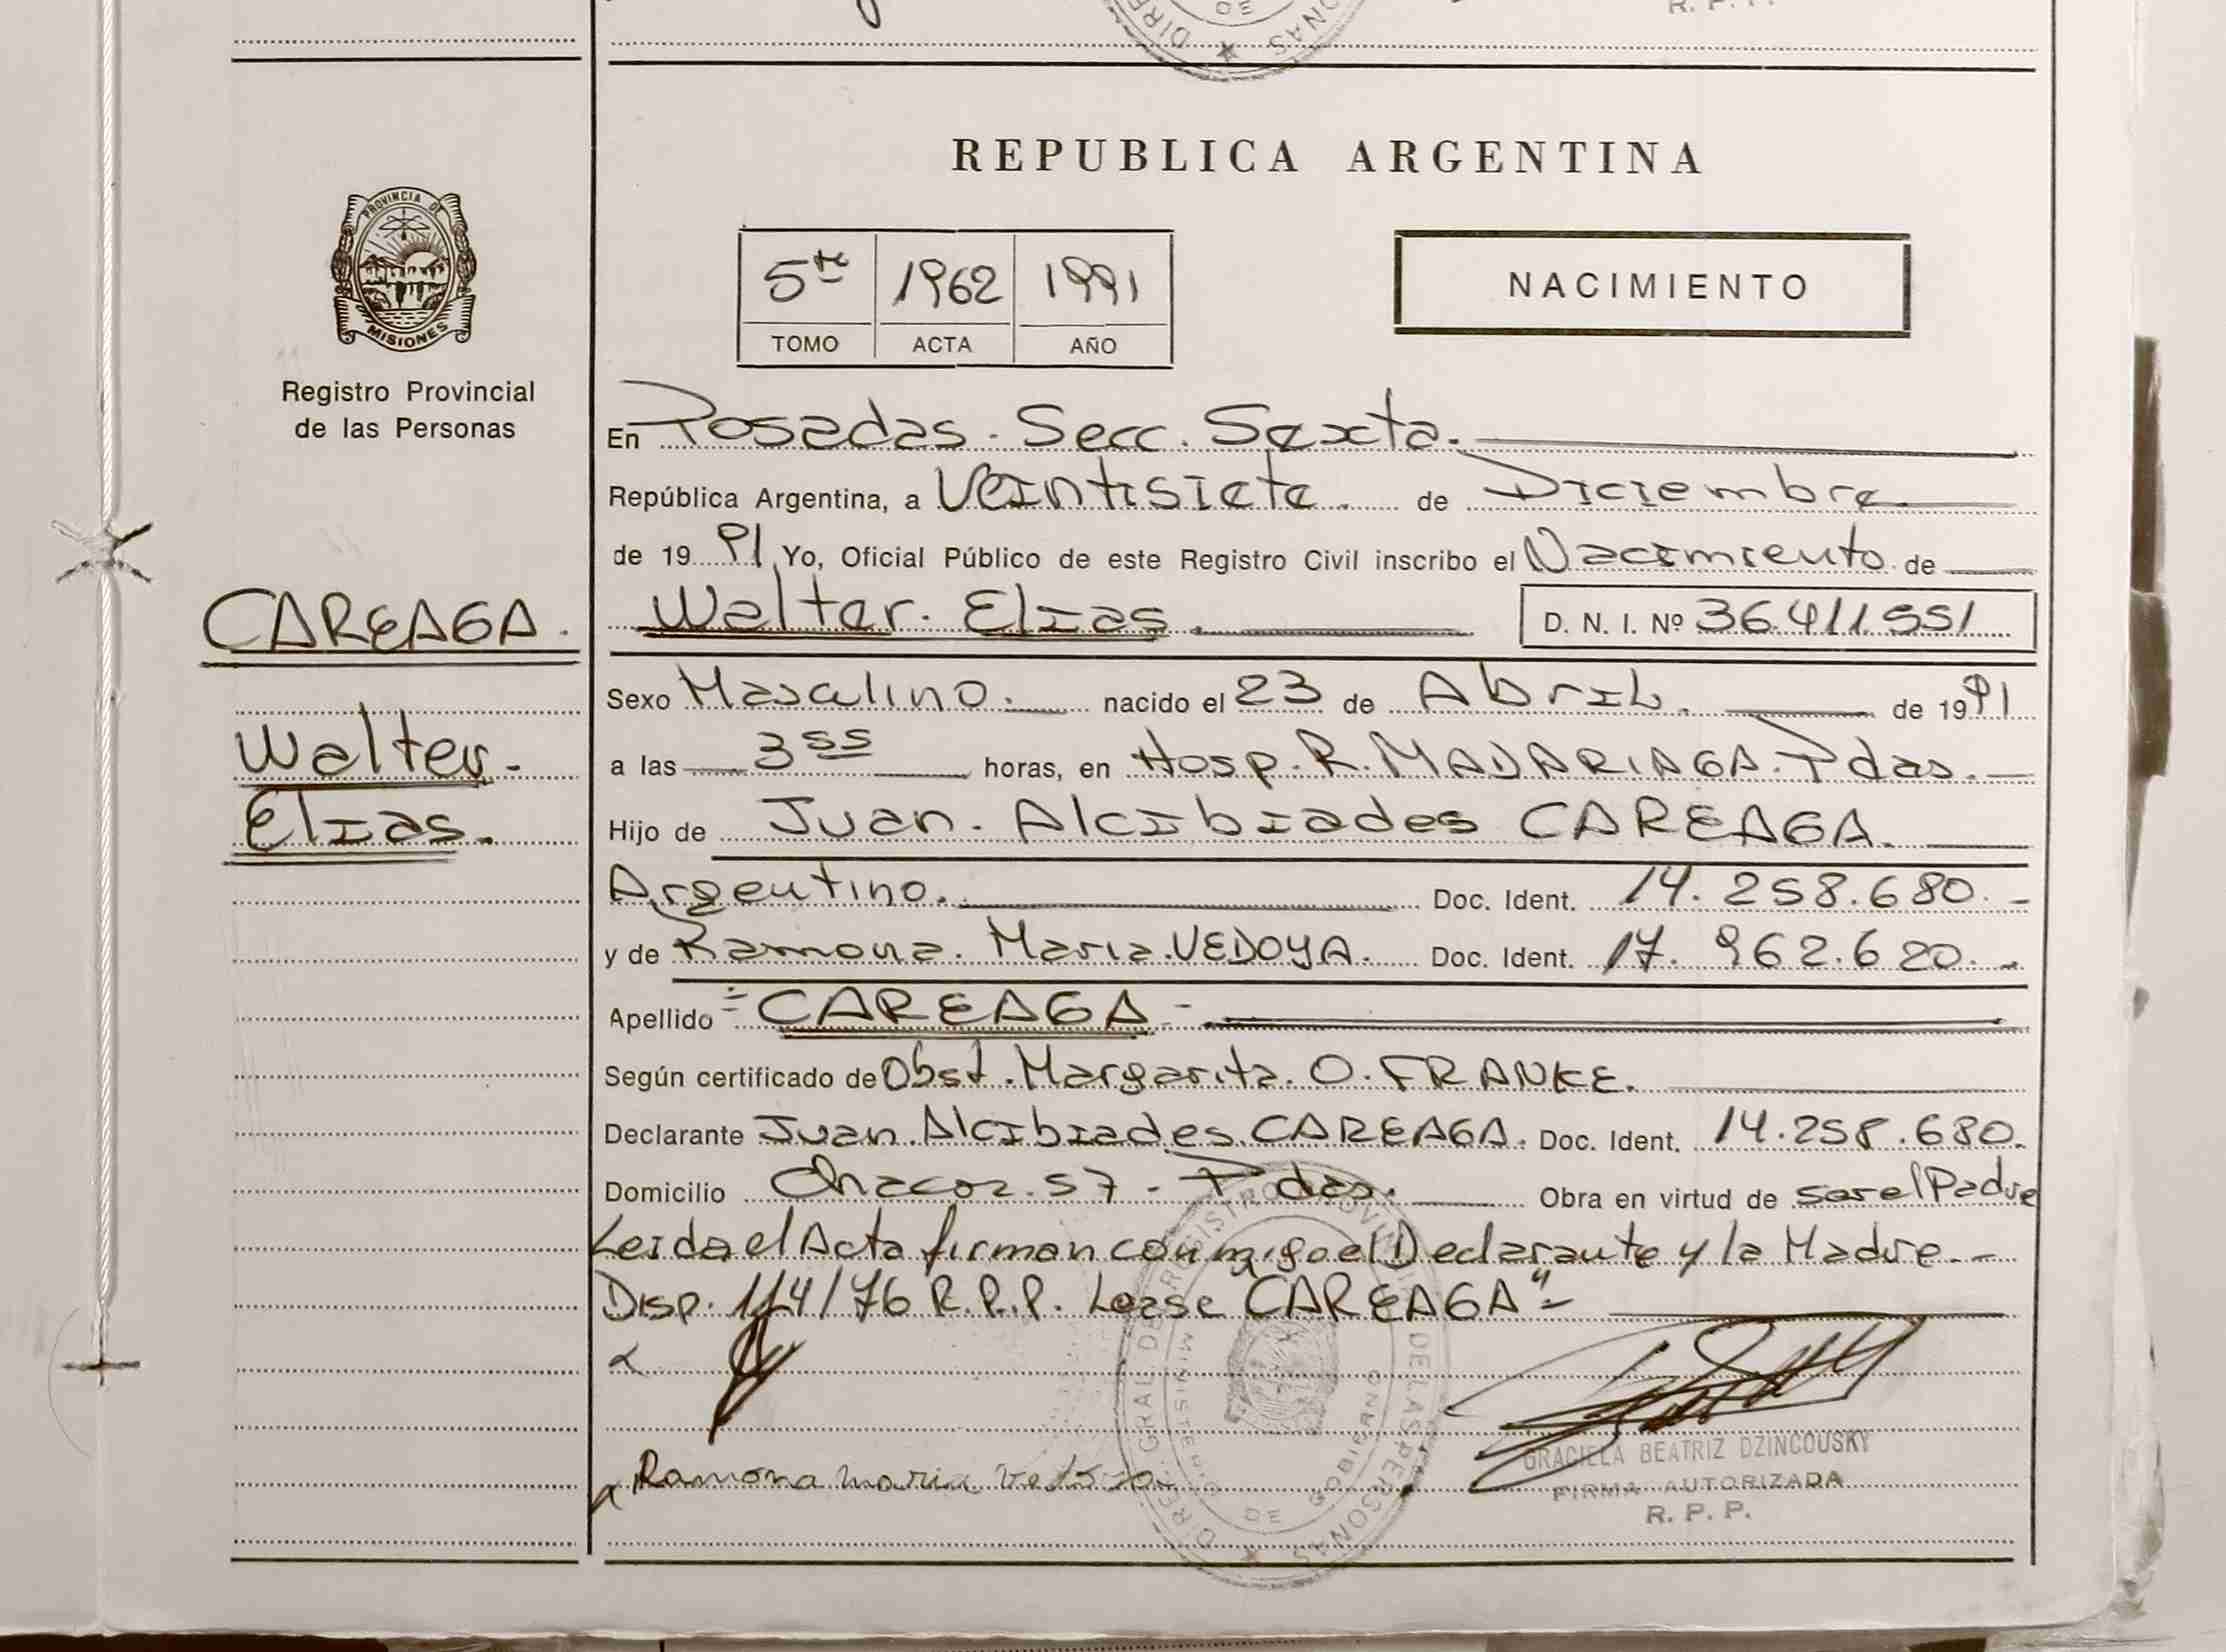 REPUBLICA ARGENTINA
PROVINCIA DE
MISIONES
Registro Provincial
de las Personas
5to 1962 1991
TOMO ACTA AÑO
NACIMIENTO
En Posadas. Secc. Sexta.
República Argentina, a Veintisiete. de Diciembre
de 19 91 Yo, Oficial Público de este Registro Civil inscribo el Nacimiento de
Walter. Elias. D. N. I. Nº 36.411.551
CAREAGA.
Walter.
Elias.
Sexo Masculino. nacido el 23 de Abril. de 1991
a las 3 55 horas, en Hosp. R. MADARIAGA. Pdas.
Hijo de Juan. Alcibiades CAREAGA.
Argentino. Doc. Ident. 14.258.680.-
y de Ramona. Maria. VEDOYA. Doc. Ident. 17.962.620.-
Apellido =CAREAGA-
Según certificado de Obst. Margarita. O. FRANKE.
Declarante Juan. Alcibiades. CAREAGA. Doc. Ident. 14.258.680.
Domicilio Chacar. 57 - Pdas. Obra en virtud de ser el Padre
Leida el Acta firman conmigo el Declarante y la Madre.-
Disp. 114/76 R.P.P. Lease "CAREAGA"-
Ramona maria Vedoya
GRACIELA BEATRIZ DZINCOUSKY
FIRMA AUTORIZADA
R. P. P.
MINISTERIO DE GOBIERNO